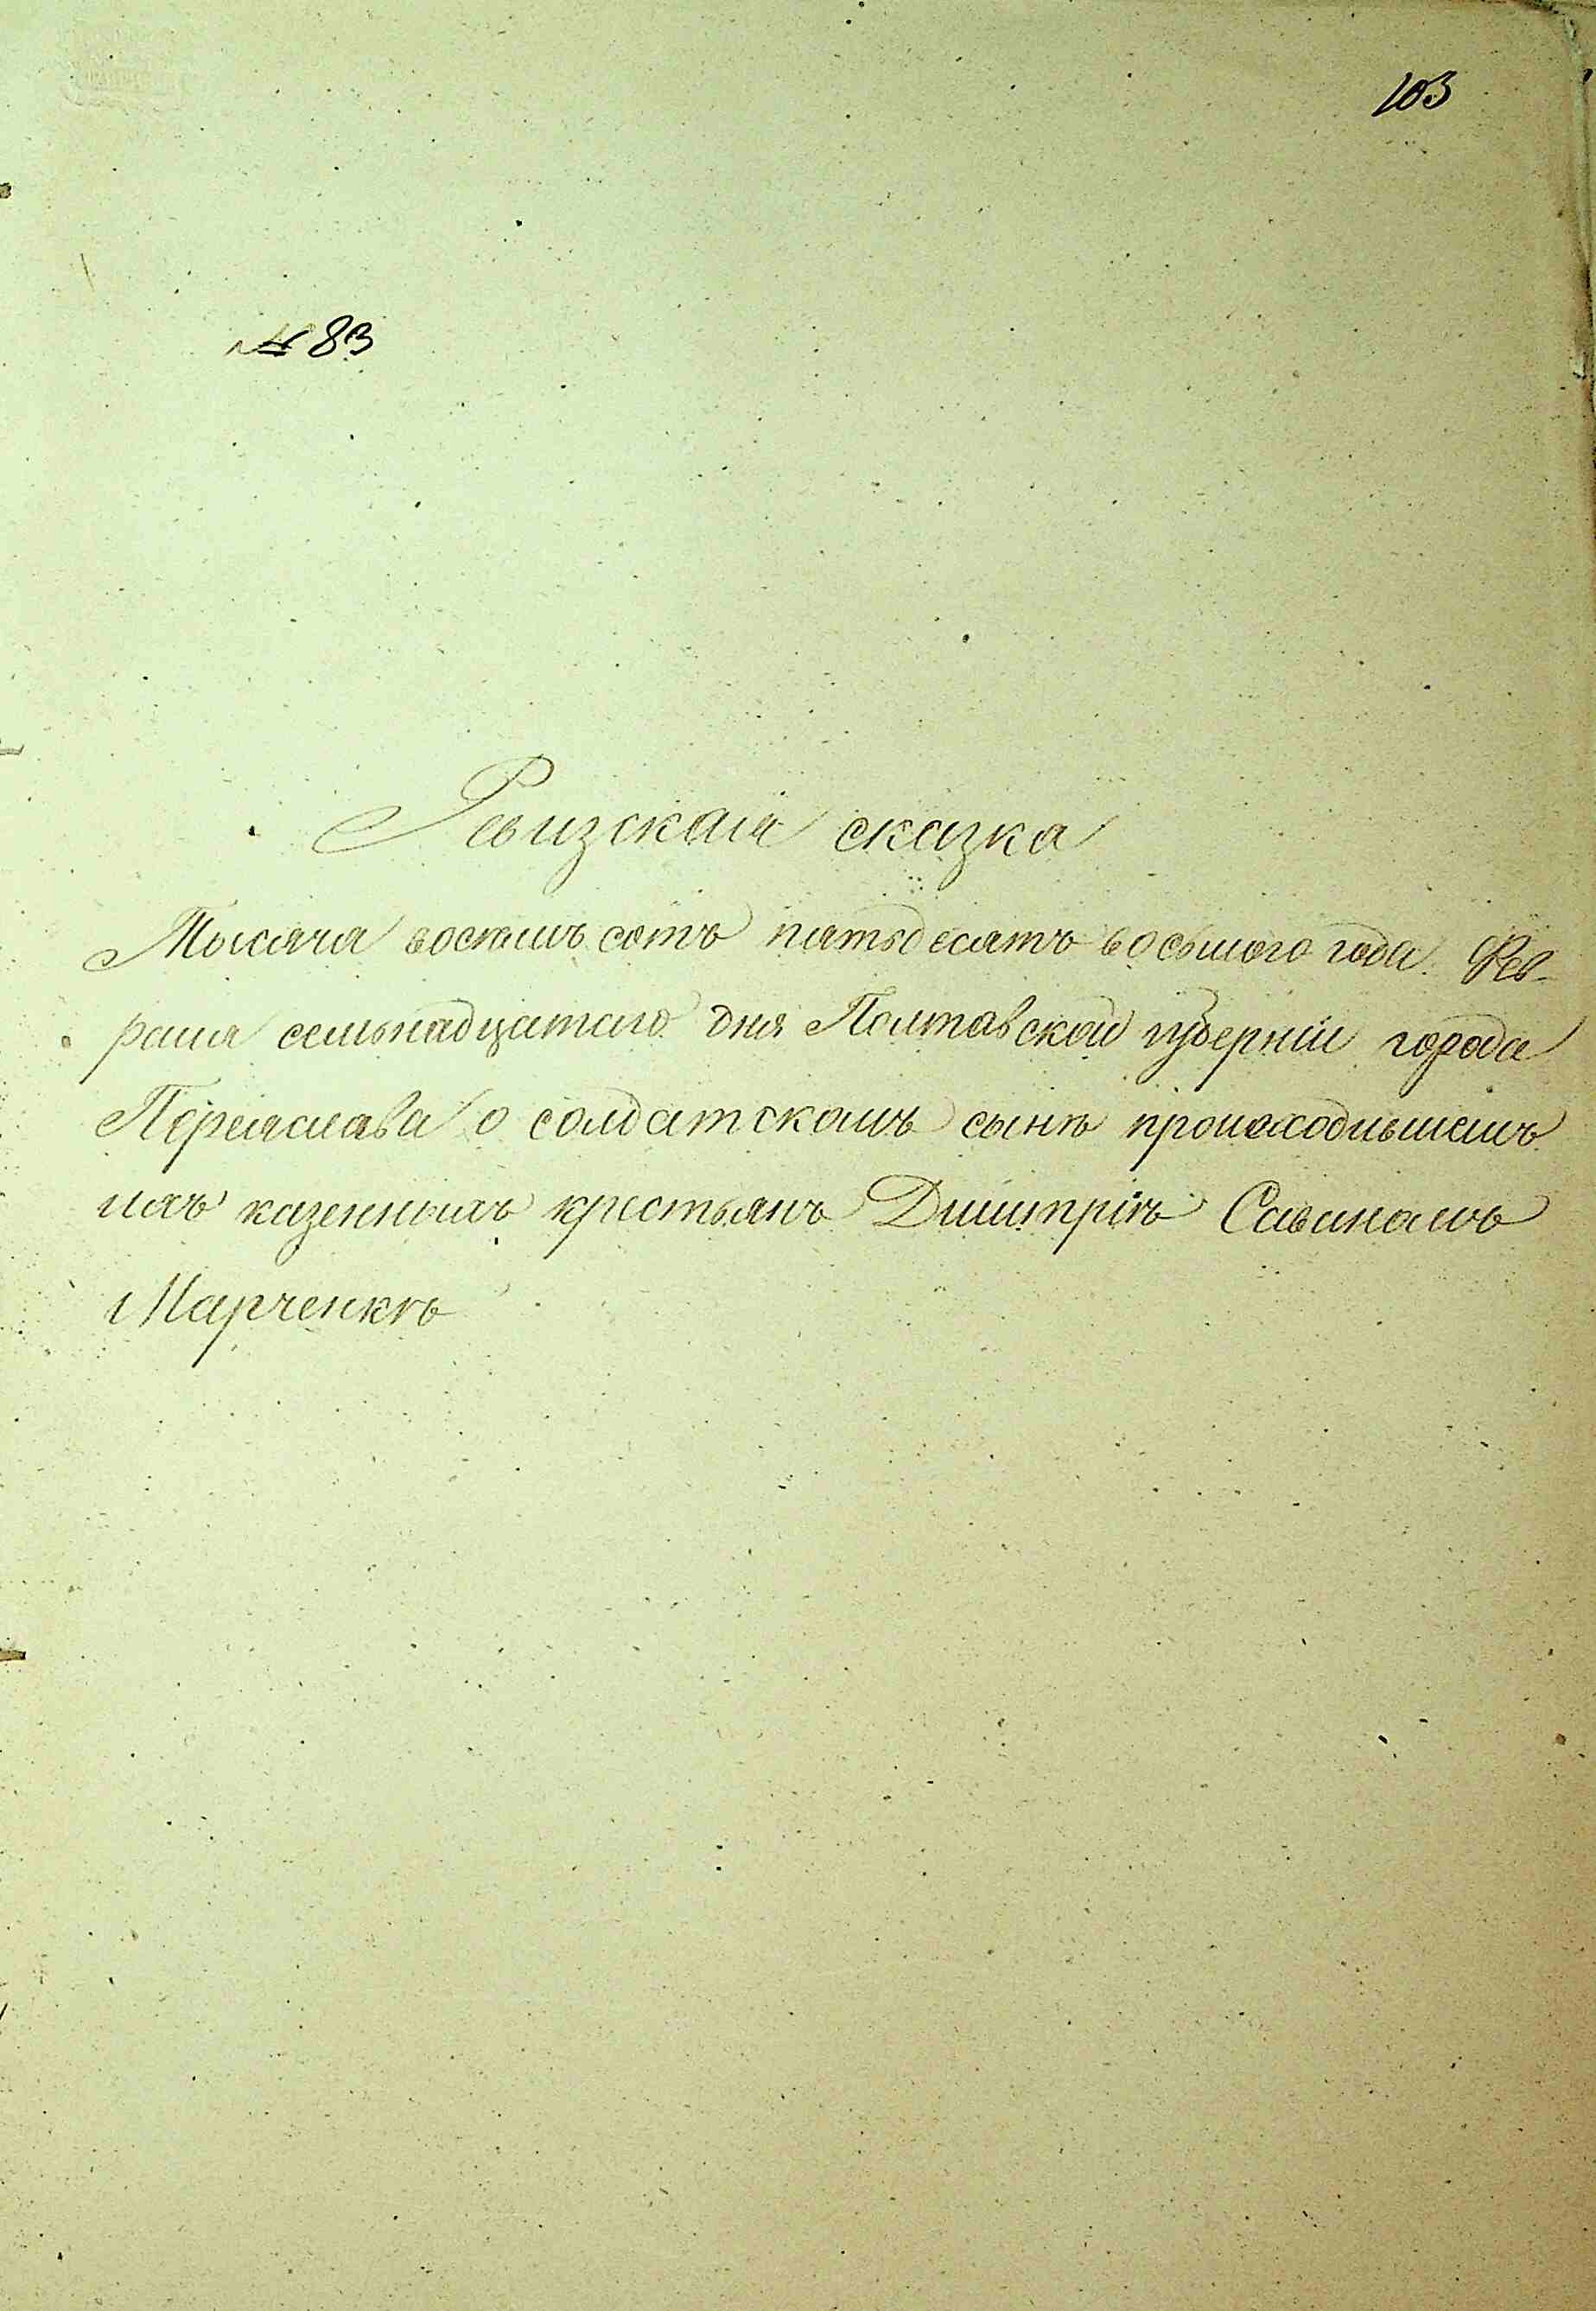 103
№ 83
Ревизская сказка
Тысяча восемь сотъ пятьдесятъ восьмого года Фев-
раля семьнадцатаго дня Полтавской губерніи города
Переяслава о солдатскомъ сынѣ происходившемъ
изъ казенныхъ крестьянъ Димитріѣ Савиномъ
Марченкѣ